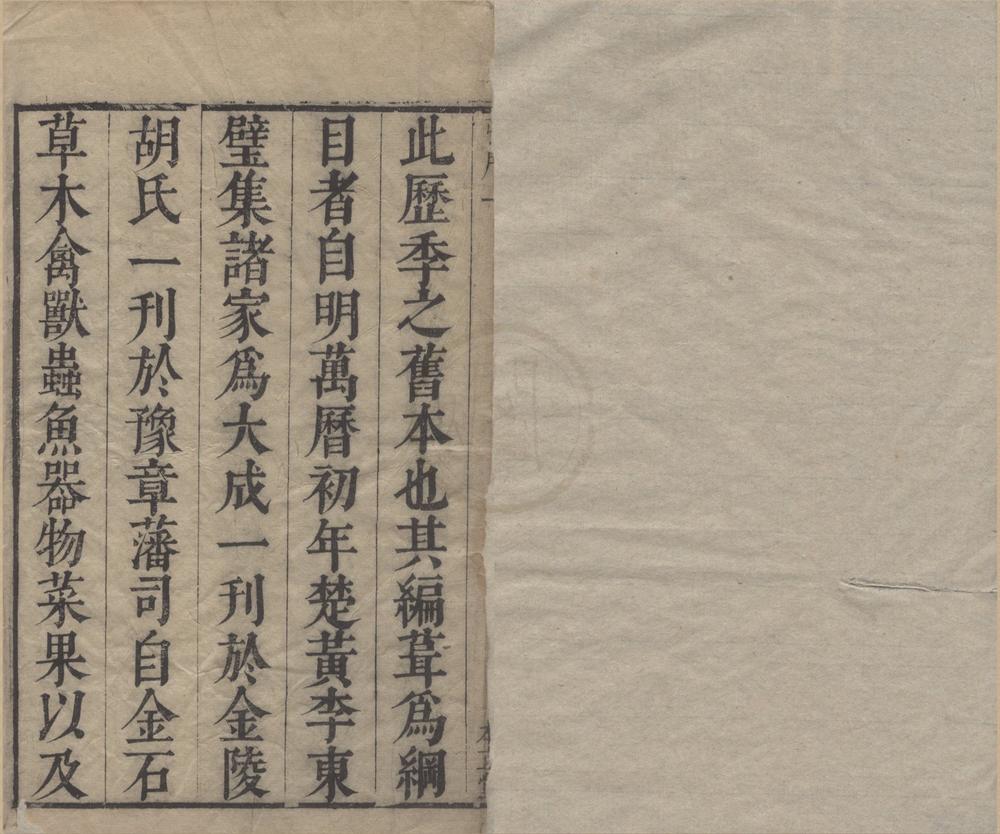 此歷季之舊本也其編葺爲綱
目者自明萬曆初年楚黃李東
璧集諸家爲大成一刊於金陵
胡氏一刊於豫章藩司自金石
草木禽獸蟲魚器物菜果以及